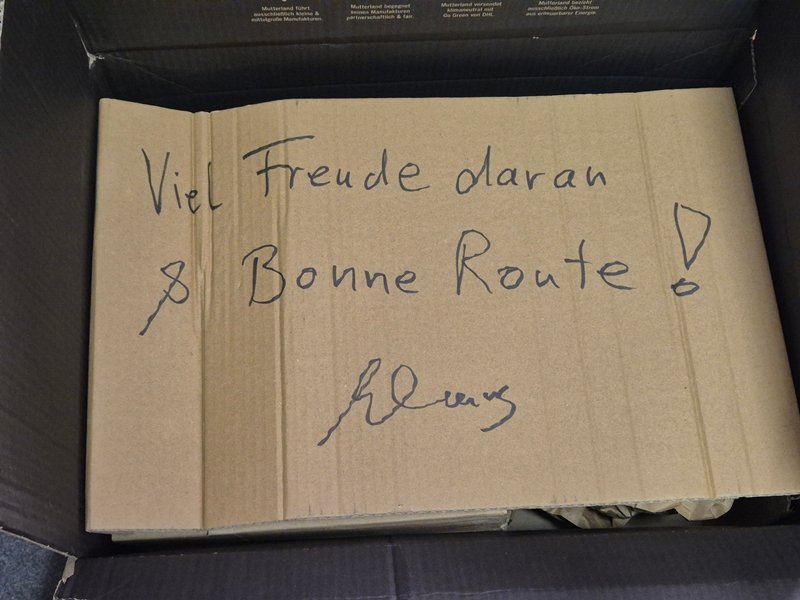 Mutterland führt
ausschließlich kleine &
mittelgroße Manufakturen.
Mutterland begegnet
seinen Manufakturen
partnerschaftlich & fair.
Mutterland versendet
klimaneutral mit
Go Green von DHL.
Mutterland bezieht
ausschließlich Öko-Strom
aus erneuerbarer Energie.
Viel Freude daran
& Bonne Route!